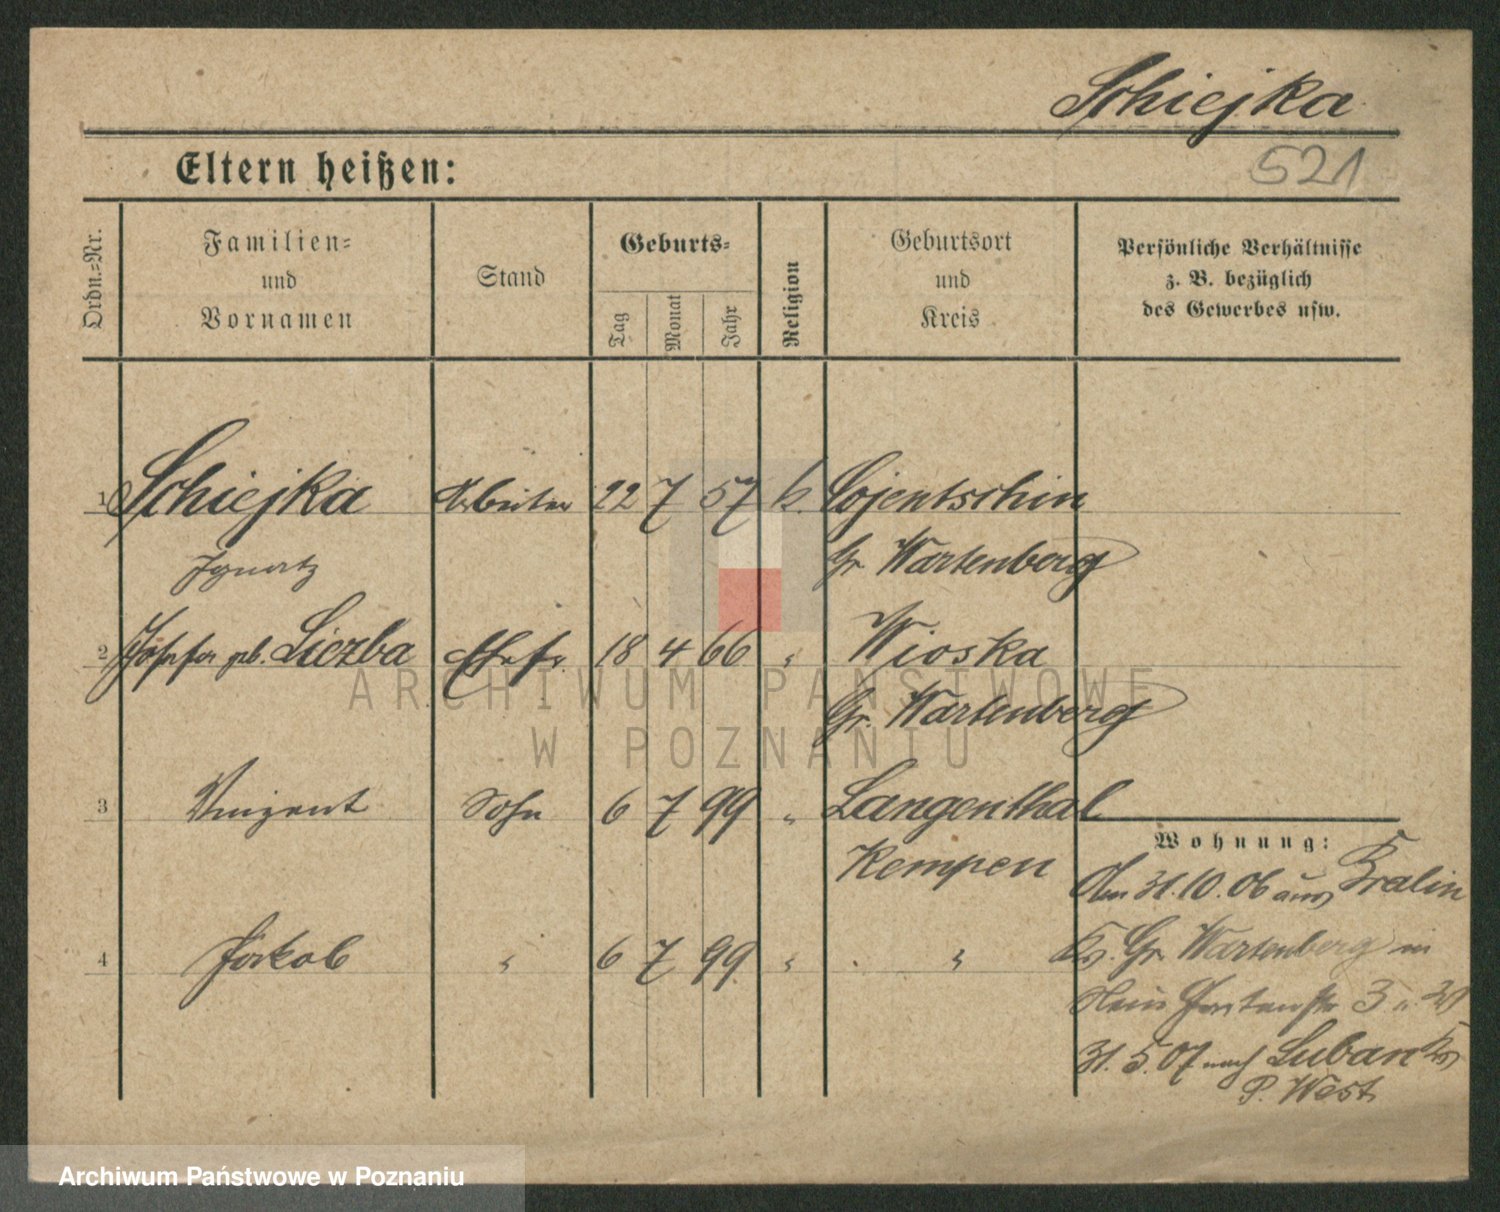 Schiejka
521
Eltern heißen:
Ordn.-Nr.
Familien- und Vornamen
Stand
Geburts-
Tag
Monat
Jahr
Religion
Geburtsort und Kreis
Persönliche Verhältnisse
z. B. bezüglich
des Gewerbes usw.
1 Schiejka Arbeiter 22 7 57 k. Lojentschin
Ignatz Gr. Wartenberg
2 Josefa geb. Liczba Ehefr. 18 4 66 " Wioska
Gr. Wartenberg
3 Vinzent Sohn 6 7 99 " Langenthal
Kempen
4 Jakob " 6 7 99 " "
Wohnung:
Am 31.10.06 aus Kralin
Kr. Gr. Wartenberg in
3
31.5.07 nach Luban Kr
P. West
ARCHIWUM PAŃSTWOWE
W POZNANIU
Archiwum Państwowe w Poznaniu